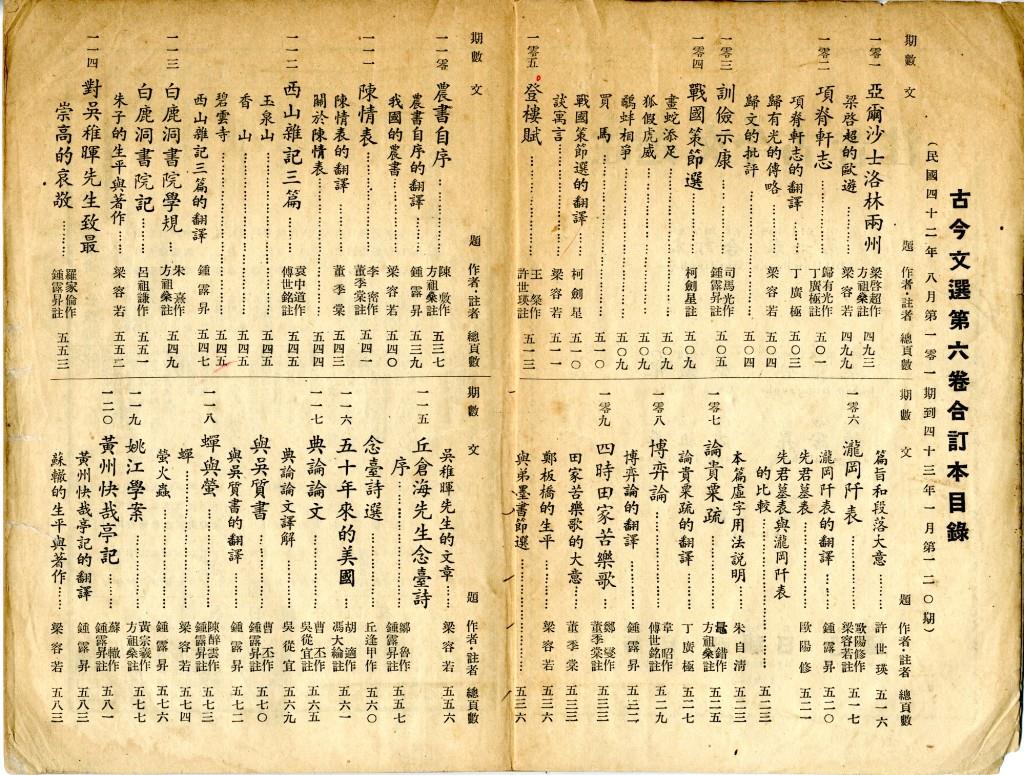 古今文選第六卷合訂本目錄
（民國四十二年八月第一零一期到四十三年一月第一二零期）
期數 文 題 作者·註者 總頁數
一零一 亞爾沙士洛林兩州 梁啓超作 方祖燊註 四九三
梁啓超的歐遊 梁容若 四九九
一零二 項脊軒志 歸有光作 丁廣極註 五零一
項脊軒志的翻譯 丁廣極 五零三
歸有光的傳略 梁容若 五零四
歸文的批評
一零三 訓儉示康 司馬光作 鍾露昇註 五零五
一零四 戰國策節選 柯劍星註 五零九
畫蛇添足 五零九
狐假虎威 五零九
鷸蚌相爭 五零九
買馬 五一零
戰國策節選的翻譯 柯劍星 五一零
談寓言 梁容若
一零五 登樓賦 王粲作 許世瑛註 五一三
期數 文 題 作者·註者 總頁數
篇旨和段落大意 許世瑛 五一六
一零六 瀧岡阡表 歐陽修作 梁容若註 五一七
瀧岡阡表的翻譯 鍾露昇 五二零
先君墓表 歐陽修 五二一
先君墓表與瀧岡阡表
的比較 五二三
本篇虛字用法説明 朱自清 五二三
一零七 論貴粟疏 鼂錯作 方祖燊註 五二五
論貴粟疏的翻譯 丁廣極 五二七
一零八 博弈論 韋昭作 傅世銘註 五二九
博弈論的翻譯 鍾露昇
一零九 四時田家苦樂歌 鄭燮作 董季棠註 五三三
田家苦樂歌的大意 董季棠 五三三
鄭板橋的生平 梁容若 五三六
與弟墨書節選 五三六
期數 文 題 作者·註者 總頁數
一一零 農書自序 陳旉作 方祖燊註 五三七
農書自序的翻譯 鍾露昇 五三九
我國的農書 梁容若 五四零
一一一 陳情表 李密作 董季棠註 五四一
陳情表的翻譯 董季棠 五四三
關於陳情表 五四四
一一二 西山雜記三篇 袁中道作 傅世銘註 五四五
玉泉山 五四五
香山 五四五
碧雲寺 五四五
西山雜記三篇的翻譯 鍾露昇 五四七
一一三 白鹿洞書院學規 朱熹作 方祖燊註 五四九
白鹿洞書院記 呂祖謙作 五五一
朱子的生平與著作 梁容若 五五二
一一四 對吳稚暉先生致最
崇高的哀敬 羅家倫作 鍾露昇註 五五三
期數 文 題 作者·註者 總頁數
吳稚暉先生的文章 梁容若 五五六
一一五 丘倉海先生念臺詩
序 鄒魯作 鍾露昇註 五五七
念臺詩選 丘逢甲作 五六零
一一六 五十年來的美國 胡適作 馮大綸註 五六一
一一七 典論論文 曹丕作 吳從宜註 五六五
典論論文譯解 吳從宜 五六九
與吳質書 曹丕作 鍾露昇註 五七零
與吳質書的翻譯 鍾露昇 五七二
一一八 蟬與螢 陳醉雲作 鍾露昇註 五七三
蟬 梁容若 五七四
螢火蟲 鍾露昇 五七六
一一九 姚江學案 黃宗羲作 方祖燊註 五七七
一二零 黃州快哉亭記 蘇轍作 鍾露昇註 五八一
黃州快哉亭記的翻譯 鍾露昇 五八二
蘇轍的生平與著作 梁容若 五八三